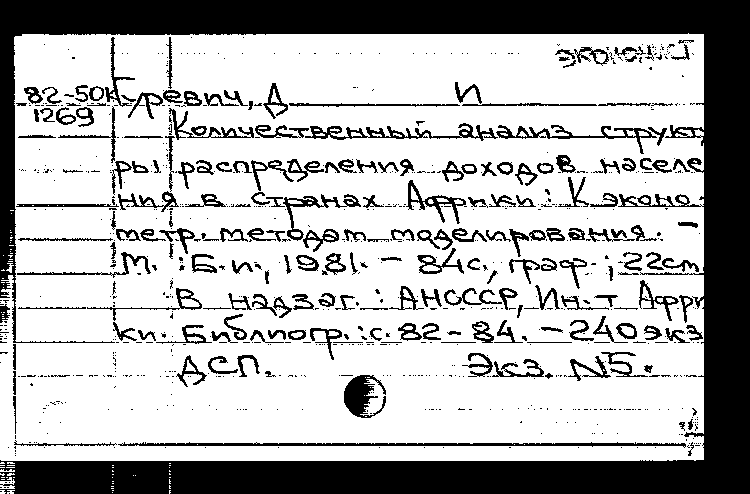 ЭКОНОМИСТ
82-50к Гуревич, Д И
1269
Количественный анализ структу
ры распределения доходов населе
ния в странах Африки: К эконо-
метр. методам моделирования. –
М. : Б.и., 1981. – 84с., граф.; 22см.
В надзаг. : АНСССР, Ин-т Афри
ки. Библиогр.: с. 82-84. – 240 экз
ДСП. Экз. N5.